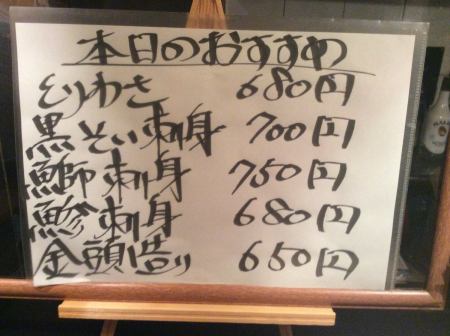 本日のおすすめ
とりわさ 680円
黒そい刺身 700円
鰤刺身 750円
鯵刺身 680円
金頭造り 650円